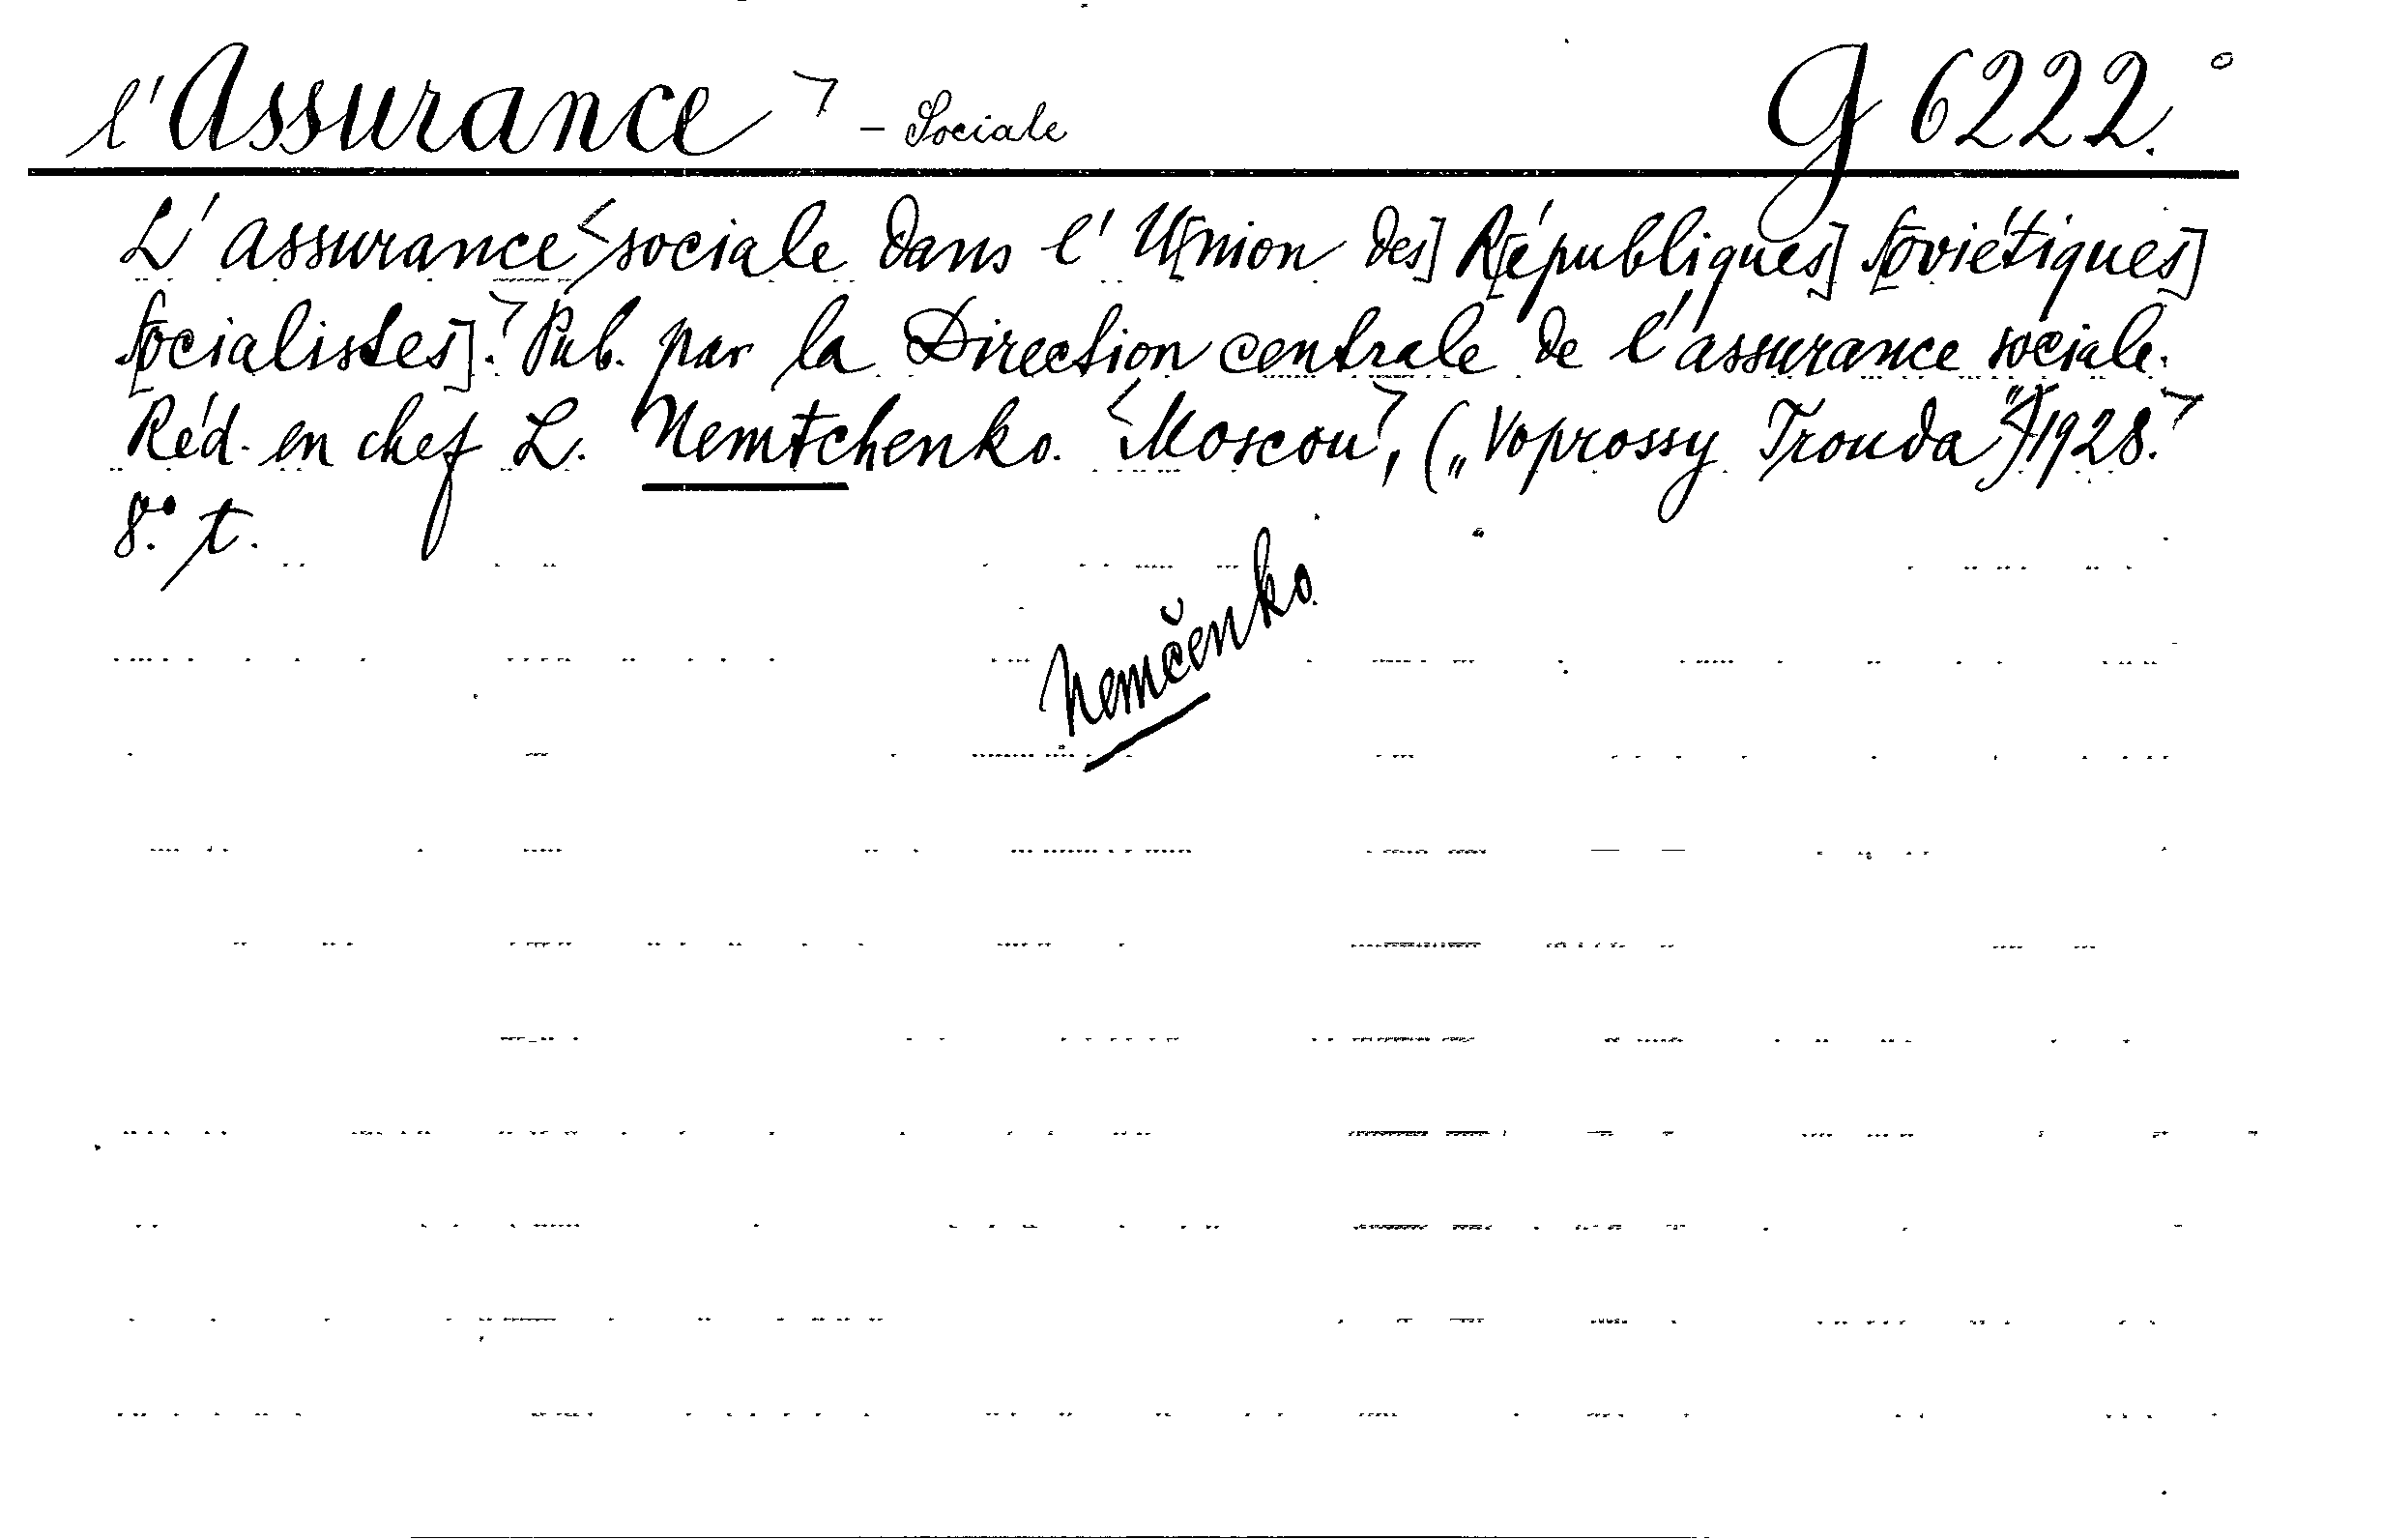 l'Assurance - Sociale G 6222.
L'assurance sociale dans l'U[nion des] R[épubliques] S[oviétiques]
S[ocialistes]. Pub. par la Direction centrale de l'assurance sociale.
Réd. en chef L. Nemtchenko. Moscou, („Voprossy Trouda") 1928.
8.° t.
Nemčenko